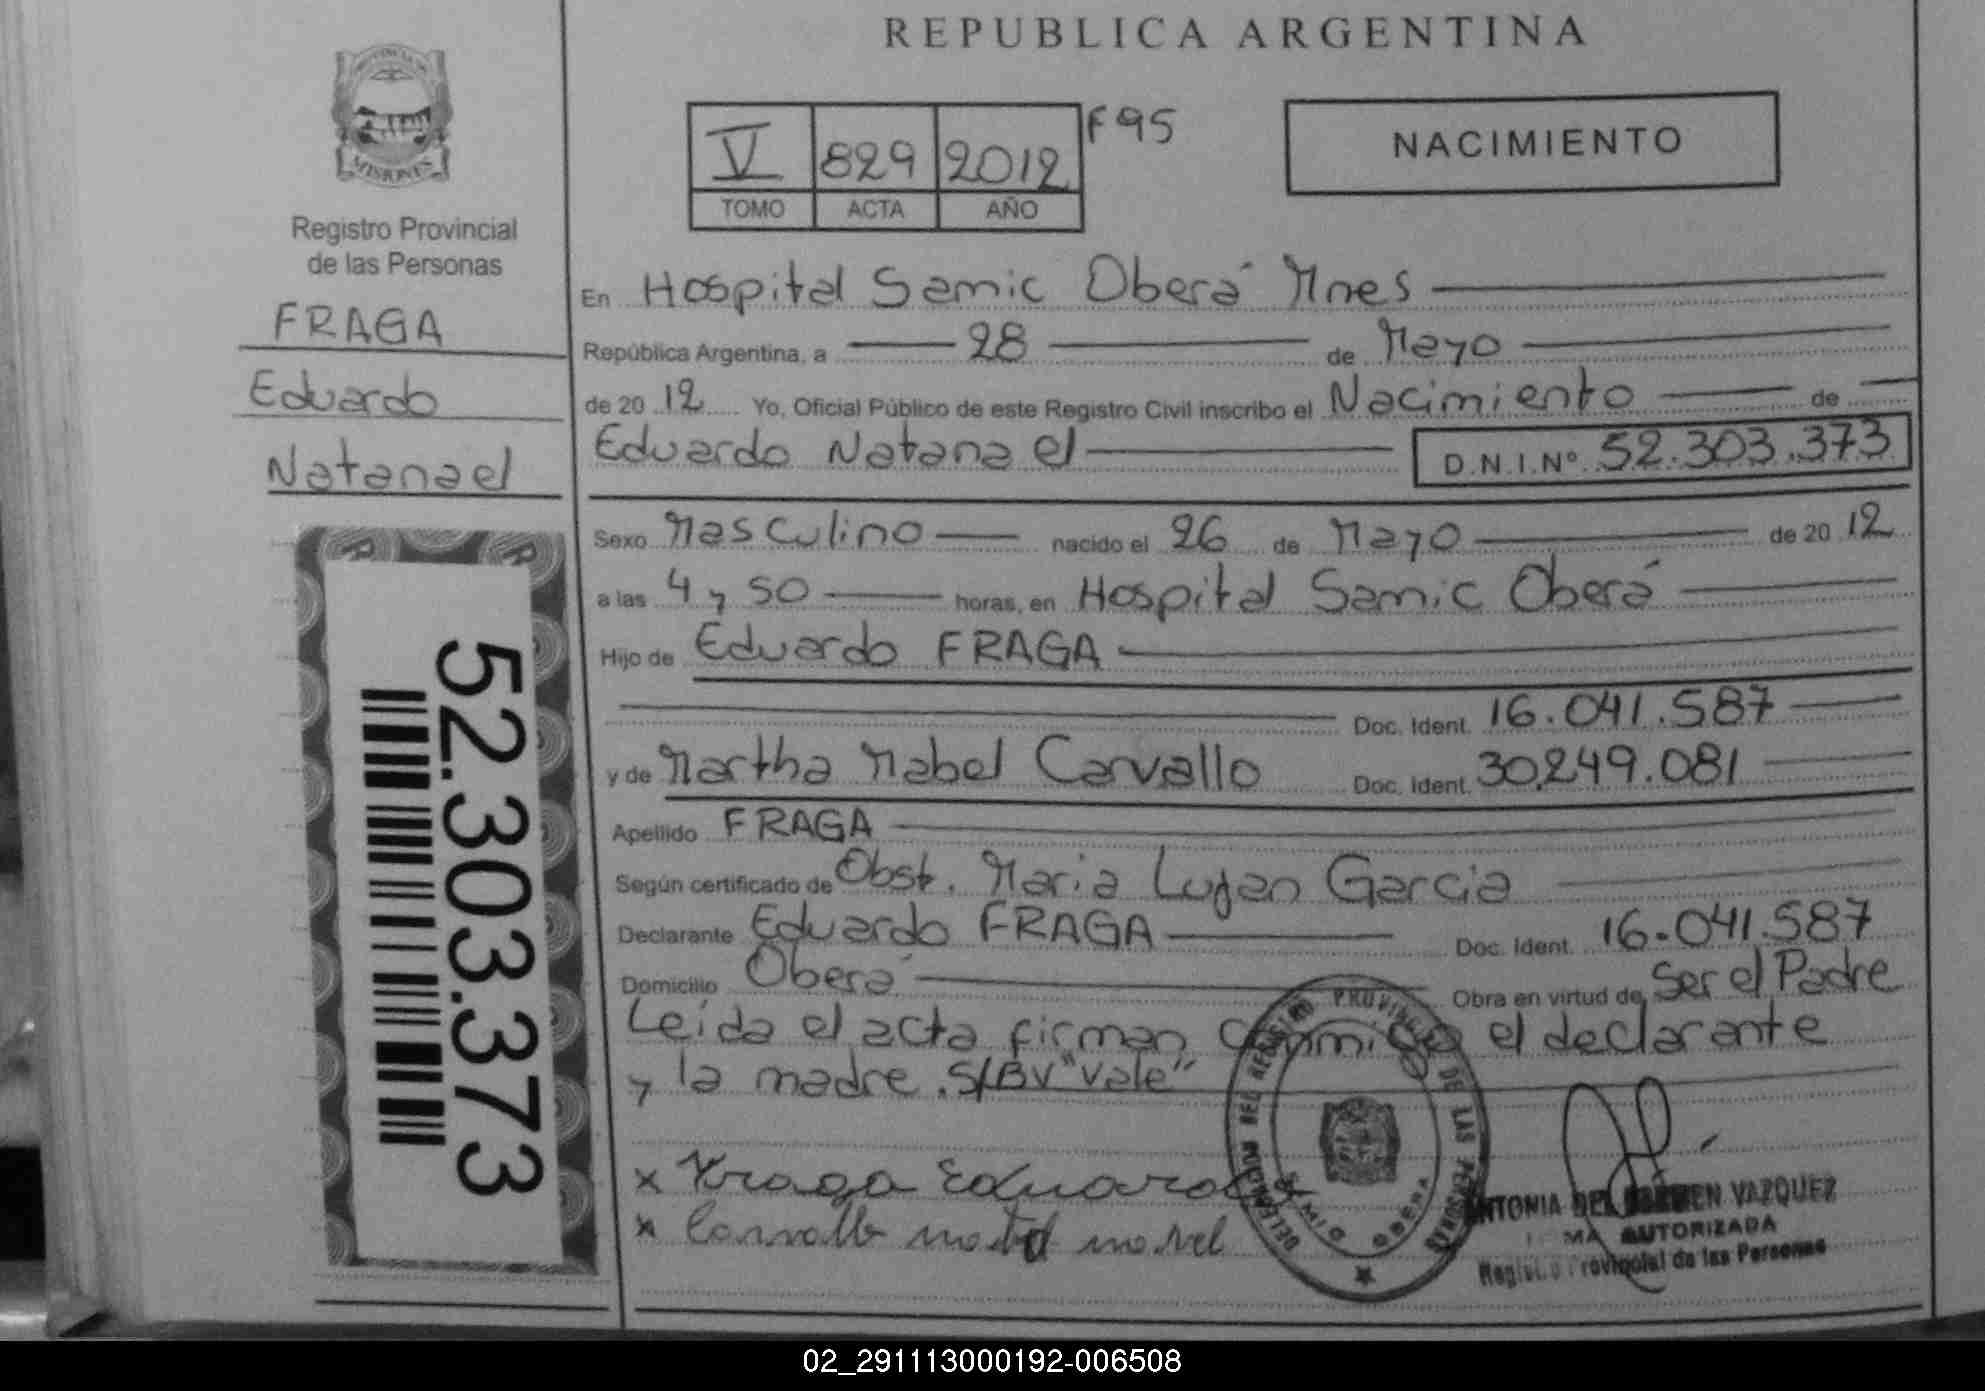 REPUBLICA ARGENTINA
PROVINCIA DE
MISIONES
Registro Provincial
de las Personas
FRAGA
Eduardo
Natanael
52.303.373
V 829 2012 F 95
TOMO ACTA AÑO
NACIMIENTO
En Hospital Samic Oberá Mnes
República Argentina, a 28 de Mayo
de 20 12 Yo, Oficial Público de este Registro Civil inscribo el Nacimiento de
Eduardo Natanael D.N.I.Nº 52.303.373
Sexo Masculino nacido el 26 de Mayo de 20 12
a las 4 y 50 horas, en Hospital Samic Oberá
Hijo de Eduardo FRAGA
Doc. Ident. 16.041.587
y de Martha Mabel Carvallo Doc. Ident. 30.249.081
Apellido FRAGA
Según certificado de Obst. Maria Lujan Garcia
Declarante Eduardo FRAGA Doc. Ident. 16.041.587
Domicilio Oberá Obra en virtud de Ser el Padre
Leída el acta firman conmigo el declarante
y la madre. S/BV "Vale"
x Fraga Eduardo
x
DELEGACION DEL REGISTRO PROVINCIAL DE LAS PERSONAS
SAMIC OBERA
ANTONIA DEL CARMEN VAZQUEZ
FIRMA AUTORIZADA
Registro Provincial de las Personas
02_291113000192-006508